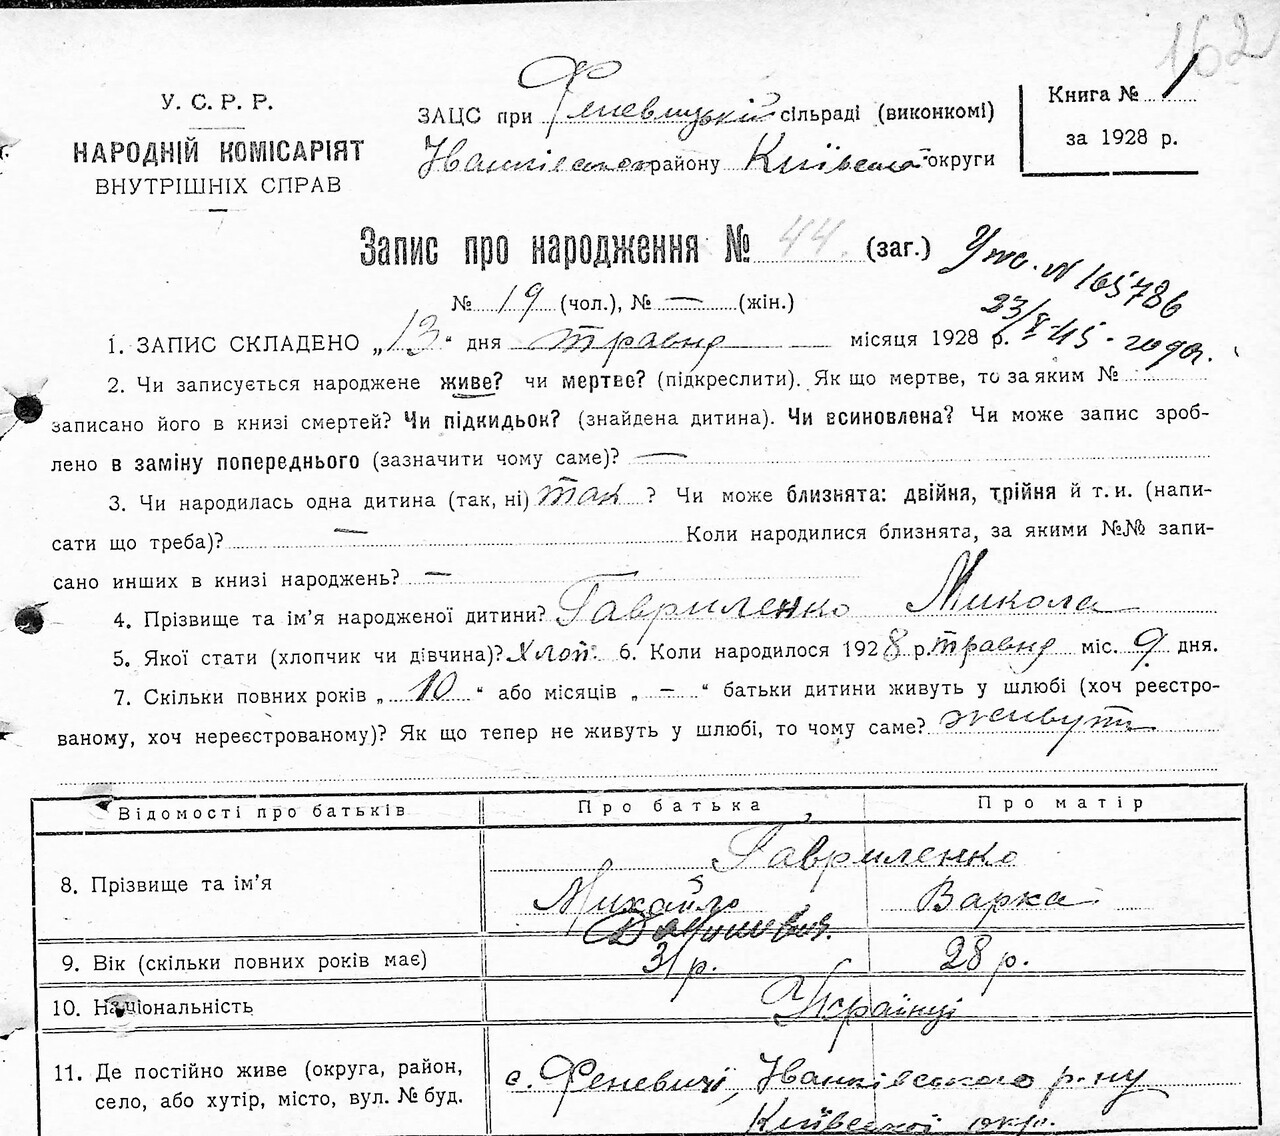 162
У. С. Р. Р.
НАРОДНІЙ КОМІСАРІЯТ
ВНУТРІШНІХ СПРАВ
ЗАЦС при Феневицькій сільраді (виконкомі)
Іванківського району Київської округи
Книга № 1
за 1928 р.
Запис про народження № 44 (заг.)
№ 19 (чол.), № — (жін.)
N 165786
23/V-45-года.
1. ЗАПИС СКЛАДЕНО „13“ дня травня — місяця 1928 р.
2. Чи записується народжене живе? чи мертве? (підкреслити). Як що мертве, то за яким №
записано його в книзі смертей? Чи підкидьок? (знайдена дитина). Чи всиновлена? Чи може запис зроб-
лено в заміну попереднього (зазначити чому саме)? —
3. Чи народилась одна дитина (так, ні) так ? Чи може близнята: двійня, трійня й т. и. (напи-
сати що треба)? — Коли народилися близнята, за якими №№ запи-
сано инших в книзі народжень? —
4. Прізвище та ім’я народженої дитини? Гавриленко Микола
5. Якої стати (хлопчик чи дівчина)? Хлоп. 6. Коли народилося 1928 р. травня міс. 9 дня.
7. Скільки повних років „10“ або місяців „—“ батьки дитини живуть у шлюбі (хоч реєстро-
ваному, хоч нереєстрованому)? Як що тепер не живуть у шлюбі, то чому саме? живуть
Відомості про батьків Про батька Про матір
Гавриленко
8. Прізвище та ім’я Михайло Варка
9. Вік (скільки повних років має) 31 р. 28 р.
10. Національність Українці
11. Де постійно живе (округа, район,
село, або хутір, місто, вул. № буд.
с. Феневичі, Іванківського р-ну
Київської окр.